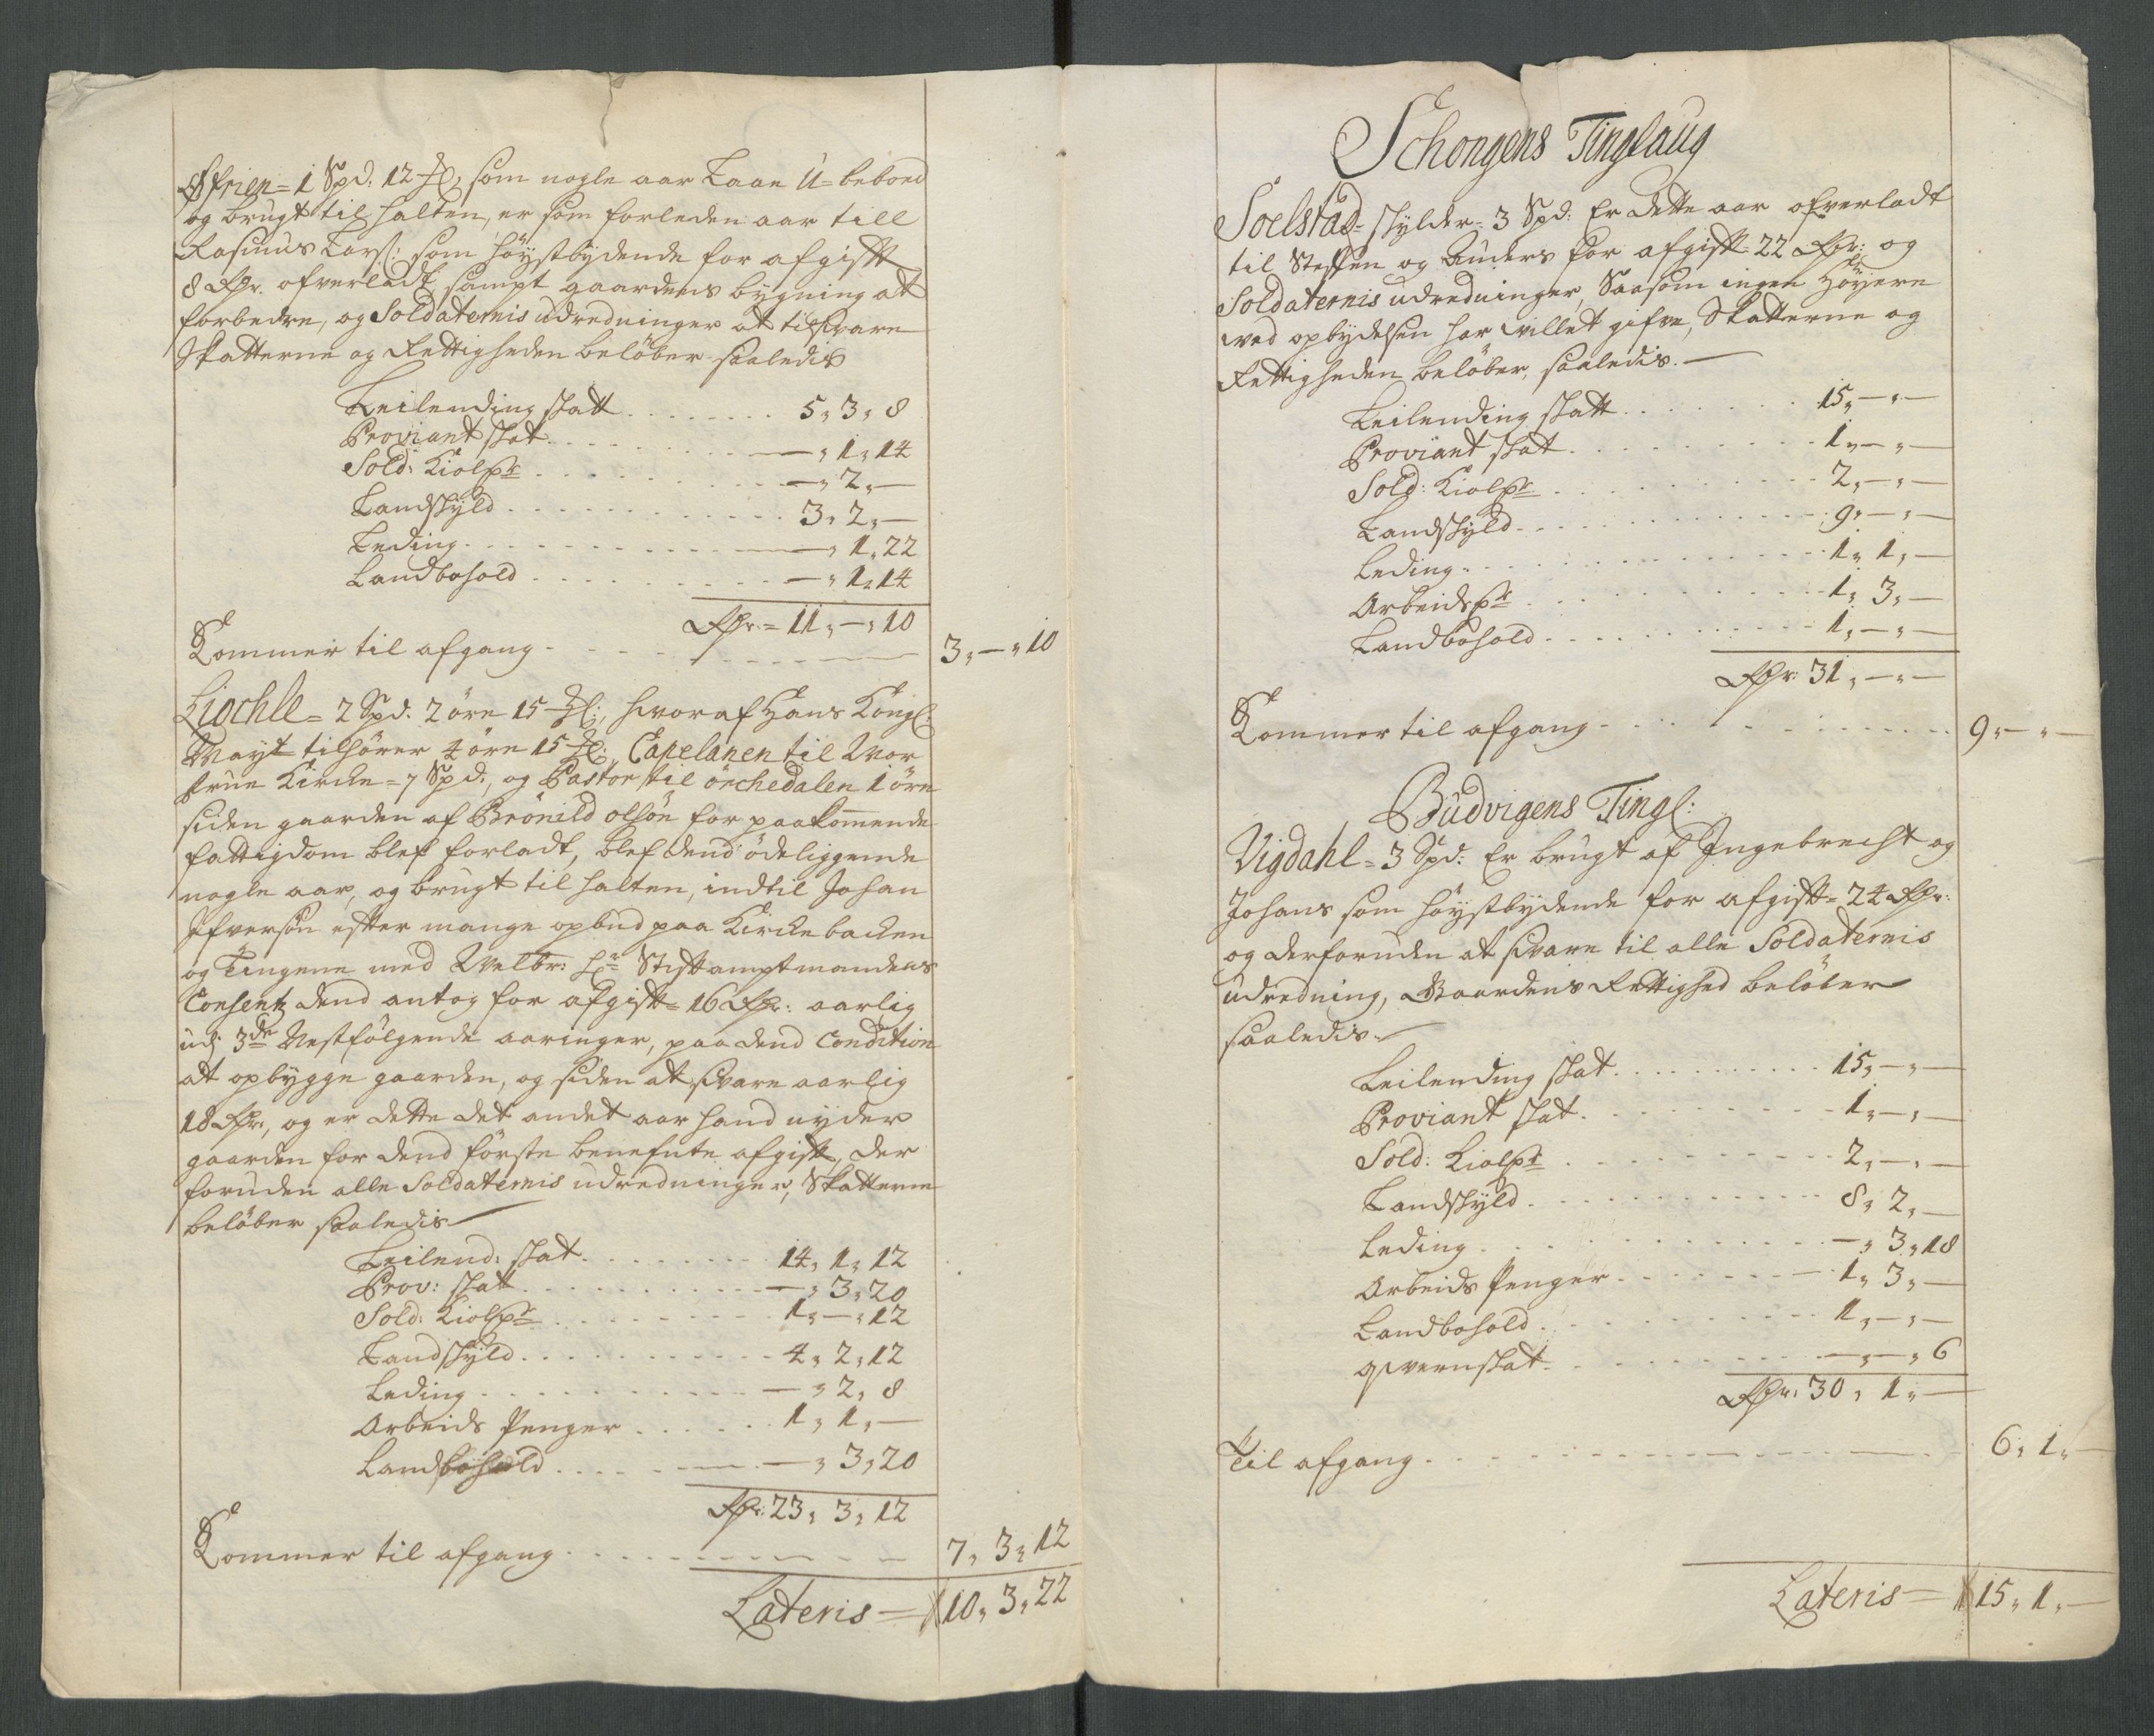 Øfrien = 1 Spd: 12 ℔, som nogle aar Laae U-beboed
og brugt til halten, er som forleden aar till
Rasmus Lars: som höystbydende for afgifft
8 Rdr. ofverladt, sampt gaardens bygning at
forbedre, og Soldaternis udredninger at tilsvare
Skatterne og Rettigheden beløber saaledis
Leilending skatt . . . . . . . 5, 3, 8
Proviant skat . . . . . . . —, 1, 14
Sold: Kiolpr . . . . . . . —, 2, —
Landskyld . . . . . . . 3, 2, —
Leding . . . . . . . —, 1, 22
Landbohold . . . . . . . —, 1, 14
Rdr. = 11, —, 10
Kommer til afgang . . . . . . . 3, —, 10
Liochle = 2 Spd. 2 öre 15 ℔:, hvoraf Hans Kongl:
Mayt tilhører 4 öre 15 ℔: Capelanen til Vor
frue Kircke = 7 Spd:, og Pastor til örchedalen 1 öre
siden gaarden af Brönild olsön for paakommende
fattigdom blef forladt, blef dend ödeliggende
nogle aar, og brugt til halten, indtil Johan
Ifversön efter mange opbud paa Kircke backen
og Tingene med Welbr: Hr Stiftamptmandens
Consentz dend antog for afgifft = 16 Rdr: aarlig
udj 3de Nestfölgende aaringer, paa dend Condition
at opbygge gaarden, og siden at svare aarlig
18 Rdr:, og er dette det andet aar hand nyder
gaarden for dend förste benefnte afgifft, der
foruden alle Soldaternis udredninger, Skatterne
beløber saaledis
Leilend: skat . . . . . . . 14, 1, 12
Prov: skatt . . . . . . . —, 3, 20
Sold: Kiolpr . . . . . . . 1, —, 12
Landskyld . . . . . . . 4, 2, 12
Leding . . . . . . . —, 2, 8
Arbeids Penger . . . . . . . 1, 1, —
Landbohold . . . . . . . —, 3, 20
Rdr: 23, 3, 12
Kommer til afgang . . . . . . . 7, 3, 12
Lateris = 10, 3, 22
Schongens Tinglaug
Soelstad = skylder = 3 Spd: Er dette aar ofverladt
til Steffen og Anders for afgifft = 22 Rdr: og
Soldaternis udredninger, Saasom ingen Höyere
wed opbydelsen har villet gifve, Skatterne og
Rettigheden beløber, saaledis. —
Leilending skatt . . . . . . . 15, —, —
Proviant skat . . . . . . . 1, —, —
Sold: Kiolpr . . . . . . . 2, —, —
Landskyld . . . . . . . 9, —, —
Leding . . . . . . . 1, 1, —
Arbeidspr . . . . . . . 1, 3, —
Landbohold . . . . . . . 1, —, —
Rdr: 31, —, —
Kommer til afgang . . . . . . . 9, —, —
Budvigens Tingl:
Vigdahl = 3 Spd: Er brugt af Ingebrecht og
Johans som höystbydende for afgifft = 24 Rdr:
og derforuden at svare til alle Soldaternis
udredning, Gaardens Rettighed beløber
saaledis
Leilending skat . . . . . . . 15, —, —
Proviant skat . . . . . . . 1, —, —
Sold: Kiolpr . . . . . . . 2, —, —
Landskyld . . . . . . . 8, 2, —
Leding . . . . . . . —, 3, 18
Arbeids Penger . . . . . . . 1, 3, —
Landbohold . . . . . . . 1, —, —
qvernskat . . . . . . . —, —, 6
Rdr: 30, 1, —
Til afgang . . . . . . . 6, 1, —
Lateris = 15, 1, —